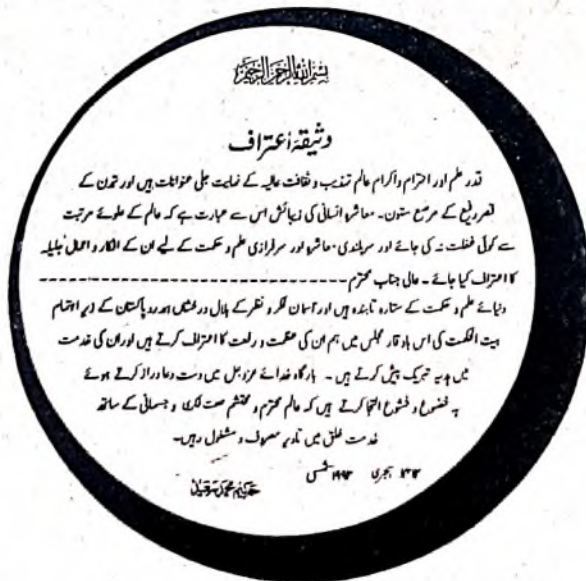 بسم اللہ الرحمن الرحیم
وثیقۂ اعتراف
قدر علم اور احترام و اکرام عالم تہذیب و ثقافت عالیہ کے نہایت جلی عنوانات ہیں اور تمدن کے
قصر رفیع کے مرصع ستون۔ معاشرۂ انسانی کی زیبائش اس سے عبارت ہے کہ عالم کے علوئے مرتبت
سے کوئی غفلت نہ کی جائے اور سربلندی معاشرہ اور سرفرازی علم و حکمت کے لیے ان کے افکار و اعمال جلیلہ
کا اعتراف کیا جائے۔ عالی جناب محترم ------------------------------
دنیائے علم و حکمت کے ستارہ تابندہ ہیں اور آسمان فکر و نظر کے ہلال درخشاں ہمدرد پاکستان کے زیر اہتمام
بیت الحکمت کی اس باوقار مجلس میں ہم ان کی عظمت و رفعت کا اعتراف کرتے ہیں اور ان کی خدمت
میں ہدیہ تبریک پیش کرتے ہیں۔ بارگاہ خدائے عزوجل میں دست دعا دراز کرتے ہوئے
بہ خضوع و خشوع التجا کرتے ہیں کہ عالم محترم و محتشم صحت فکری و جسمانی کے ساتھ
خدمت خلق میں تادیر مصروف و مشغول رہیں۔
ہجری ۱۹۹۳ شمسی
حکیم محمد سعید